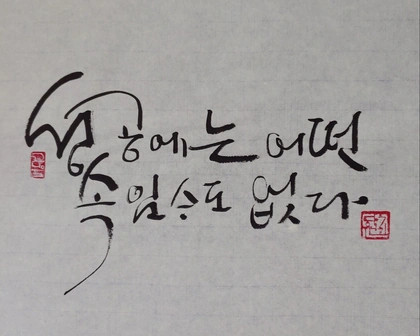 성공에는 어떤
속임수도 없다.